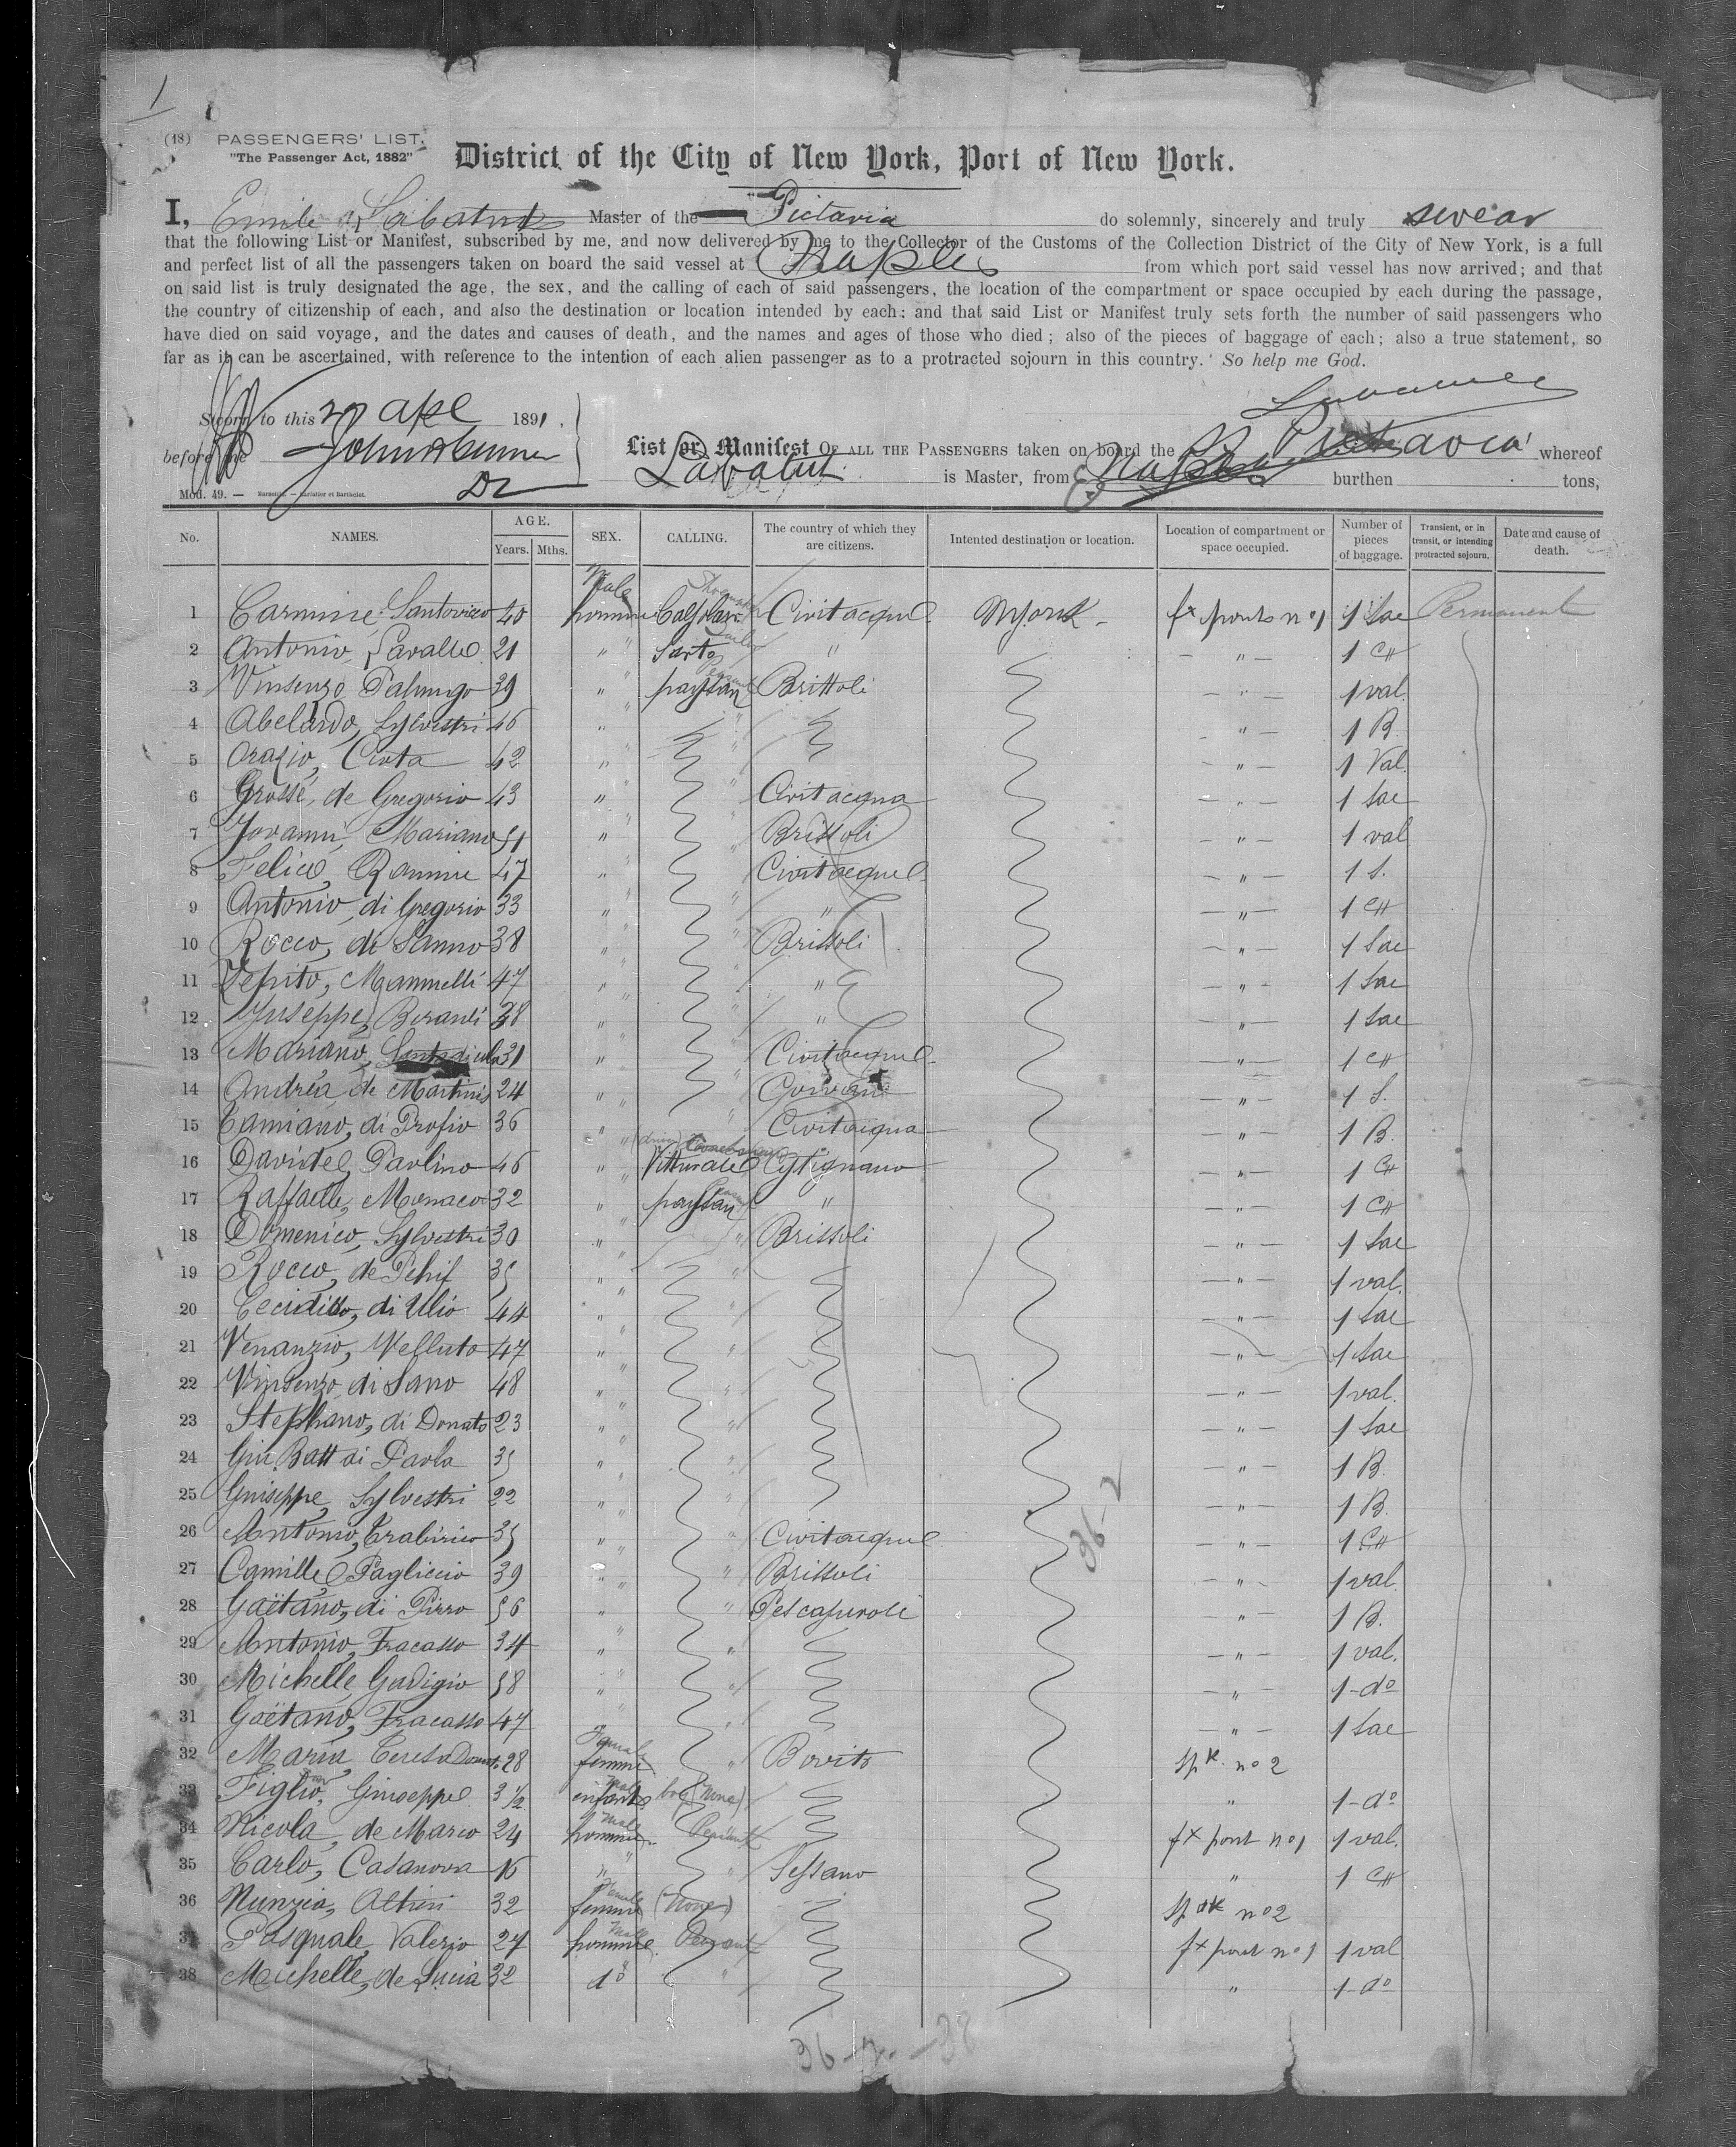 1
(18) PASSENGERS' LIST.
"The Passenger Act, 1882"
District of the City of New York, Port of New York.
I, Emile Labatut Master of the Pictavia do solemnly, sincerely and truly swear
that the following List or Manifest, subscribed by me, and now delivered by me to the Collector of the Customs of the Collection District of the City of New York, is a full
and perfect list of all the passengers taken on board the said vessel at Naples from which port said vessel has now arrived; and that
on said list is truly designated the age, the sex, and the calling of each of said passengers, the location of the compartment or space occupied by each during the passage,
the country of citizenship of each, and also the destination or location intended by each: and that said List or Manifest truly sets forth the number of said passengers who
have died on said voyage, and the dates and causes of death, and the names and ages of those who died; also of the pieces of baggage of each; also a true statement, so
far as it can be ascertained, with reference to the intention of each alien passenger as to a protracted sojourn in this country. So help me God.
Sworn to this 27 Apl 1891.
before me
List or Manifest OF ALL THE PASSENGERS taken on board the Pictavia whereof
Labatut is Master, from Naples burthen tons,
Mod. 49. — Marseille. — Barlatier et Barthelet.
No. NAMES. AGE. Years. Mths. SEX. CALLING. The country of which they are citizens. Intented destination or location. Location of compartment or space occupied. Number of pieces of baggage. Transient, or in transit, or intending protracted sojourn. Date and cause of death.
1 Carmine, Santovicco 40 Male homme Shoemaker Civitacquel. NYork f^x ponts n° 1 1 Sac Permanent
2 Antonio, Lavalle 21 " Sarto " — " — 1 CH
3 Vinsenzo Palungo 39 " paysan Brittoli — " — 1 val.
4 Abelardo, Sylvestri 46 " — " — 1 B.
5 Orazio, Civta 42 " — " — 1 Val.
6 Grosse, de Gregorio 43 " Civitacqua — " — 1 Sac
7 Jovanni, Mariano 51 " Brissoli — " — 1 val
8 Felice, Rannie 47 " Civitacquel. — " — 1 S.
9 Antonio, di Gregorio 33 " " — " — 1 CH
10 Rocco, di Sanno 38 " Brissoli — " — 1 Sac
11 Mannelli 47 " " — " — 1 Sac
12 Juseppe, Berardi 38 " " — " — 1 Sac
13 Mariano, 31 " Civitacquel. — " — 1 CH
14 Andréa de Martinis 24 " — " — 1 S.
15 Camiano, di Profio 36 " Civitacqua — " — 1 B.
16 Davidel, Paolino 46 " Vitturale Cystignano — " — 1 CH
17 Raffaelle, Monaco 32 " paysan " — " — 1 CH
18 Domenico, Sylvestri 30 " Brissoli — " — 1 Sac
19 Rocco, de 35 " — " — 1 val.
20 di Ulio 44 " — " — 1 Sac
21 Venanzio, Velluto 47 " — " — 1 Sac
22 Vinsenzo di Sano 48 " — " — 1 val.
23 Stephano, di Donato 23 " — " — 1 Sac
24 Giu. Batt di Paola 35 " — " — 1 B.
25 Guiseppe, Sylvestri 22 " — " — 1 B.
26 Antonio, 35 " Civitacquel — " — 1 CH
27 Camille, Pagliccio 39 " Brissoli — " — 1 val.
28 Gaëtano, di Pirro 56 " Pescasseroli — " — 1 B.
29 Antonio, Fracasso 34 " " — " — 1 val.
30 Michelle, Gudigio 58 " " — " — 1 - d°
31 Gaëtano, Fracasso 47 " — " — 1 Sac
32 Maria, Teresa Donat. 28 Female femme " Bovito n° 2
33 Figlio, Giuseppe 3 1/2 Male enfant boy (None) " 1 - d°
34 Nicola, de Marco 24 Male homme f^x pont n° 1 1 val.
35 Carlo, Casanova 16 " " Sessano " 1 CH
36 Nunzia, Altieri 32 Female femme (None) n° 2
37 Pasquale, Valerio 27 Male homme f^x pont n° 1 1 val
38 Michelle, de Lucia 32 d° " " 1 - d°
36-2